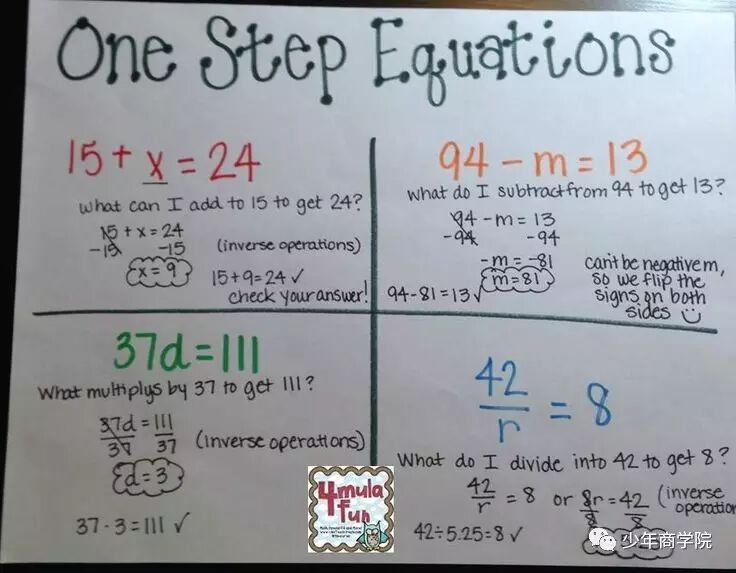 One Step Equations
15 + x = 24
What can I add to 15 to get 24?
15 + x = 24
-15 -15
(inverse operations)
x = 9
15+9=24 ✓
check your answer!
94 - m = 13
What do I subtract from 94 to get 13?
94 - m = 13
-94 -94
-m = -81
m = 81
94-81=13✓
can't be negative m,
so we flip the
signs on both
sides
37d = 111
What multiplys by 37 to get 111?
37d = 111
37 37
(inverse operations)
d = 3
37 · 3 = 111 ✓
42
r = 8
What do I divide into 42 to get 8?
42
r = 8 or 8r = 42
8 8
(inverse
operation
42÷5.25=8 ✓
4mula
fun
少年商学院